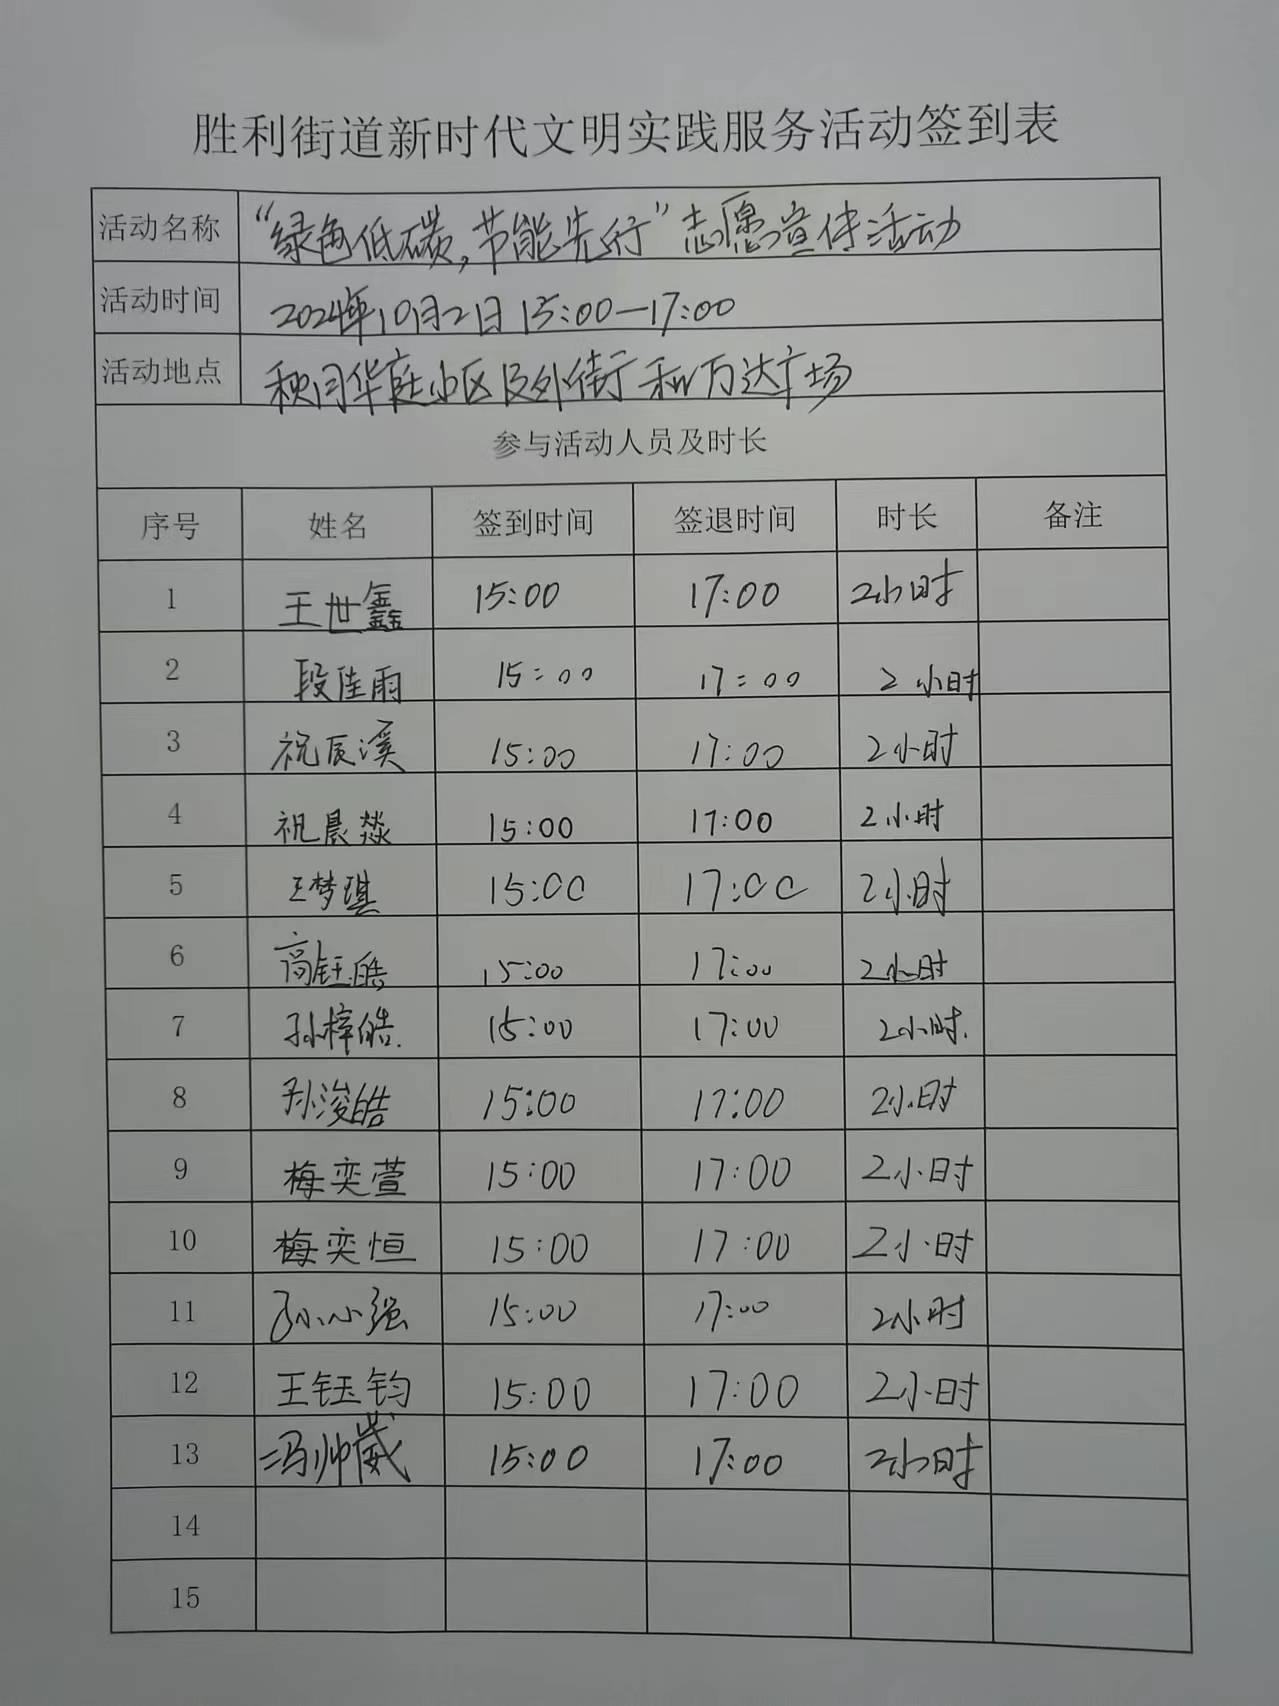 胜利街道新时代文明实践服务活动签到表
活动名称 “绿色低碳,节能先行”志愿宣传活动
活动时间 2024年10月2日 15:00—17:00
活动地点 秋月华庭小区及外街和万达广场
参与活动人员及时长
序号 姓名 签到时间 签退时间 时长 备注
1 王世鑫 15:00 17:00 2小时
2 段佳雨 15:00 17:00 2小时
3 祝辰溪 15:00 17:00 2小时
4 祝晨燚 15:00 17:00 2小时
5 王梦琪 15:00 17:00 2小时
6 高钰皓 15:00 17:00 2小时
7 孙梓皓. 15:00 17:00 2小时.
8 孙浚皓 15:00 17:00 2小时
9 梅奕萱 15:00 17:00 2小时
10 梅奕恒 15:00 17:00 2小时
11 孙小强 15:00 17:00 2小时
12 王钰钧 15:00 17:00 2小时
13 冯帅崴 15:00 17:00 2小时
14
15